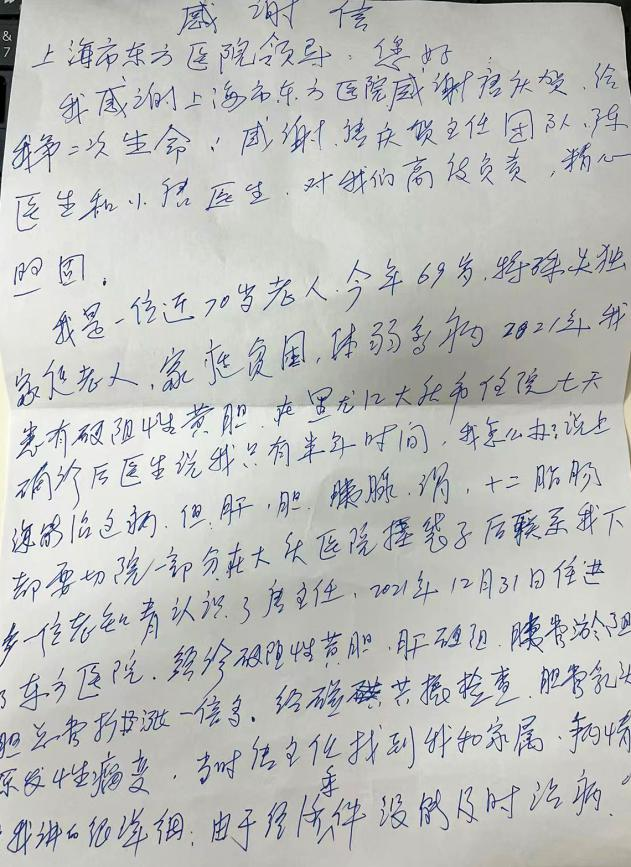 感谢信
上海市东方医院领导：您好
我感谢上海市东方医院感谢唐庆贺，给
我第二次生命，感谢唐庆贺主任团队，陈
医生和小唐医生．对我们高役负责，精心
照固．
我是一位近70岁老人．今年69岁，特殊失独
家庭老人，家庭贫困，体弱多病2021年我
患有破阻性黄胆．在黑龙江大庆市住院七天
确诊后医生说我只有半年时间，我怎么办？说上
海能治这病．但肝，胆．胰腺．胃，十二脂肠
都要切院一部分在大庆医院插袋子后联系我下
乡一位老知青认识了唐主任，2021年12月31日住进
了东方医院．经诊破阻性黄胆．肝破阻．胰管
胆总管扩张一倍多．经磁共振检查．胆管乳头
原发性癌变，当时唐主任找到我和家属．病情
我讲的很详细：由于经条件没能及时治病．